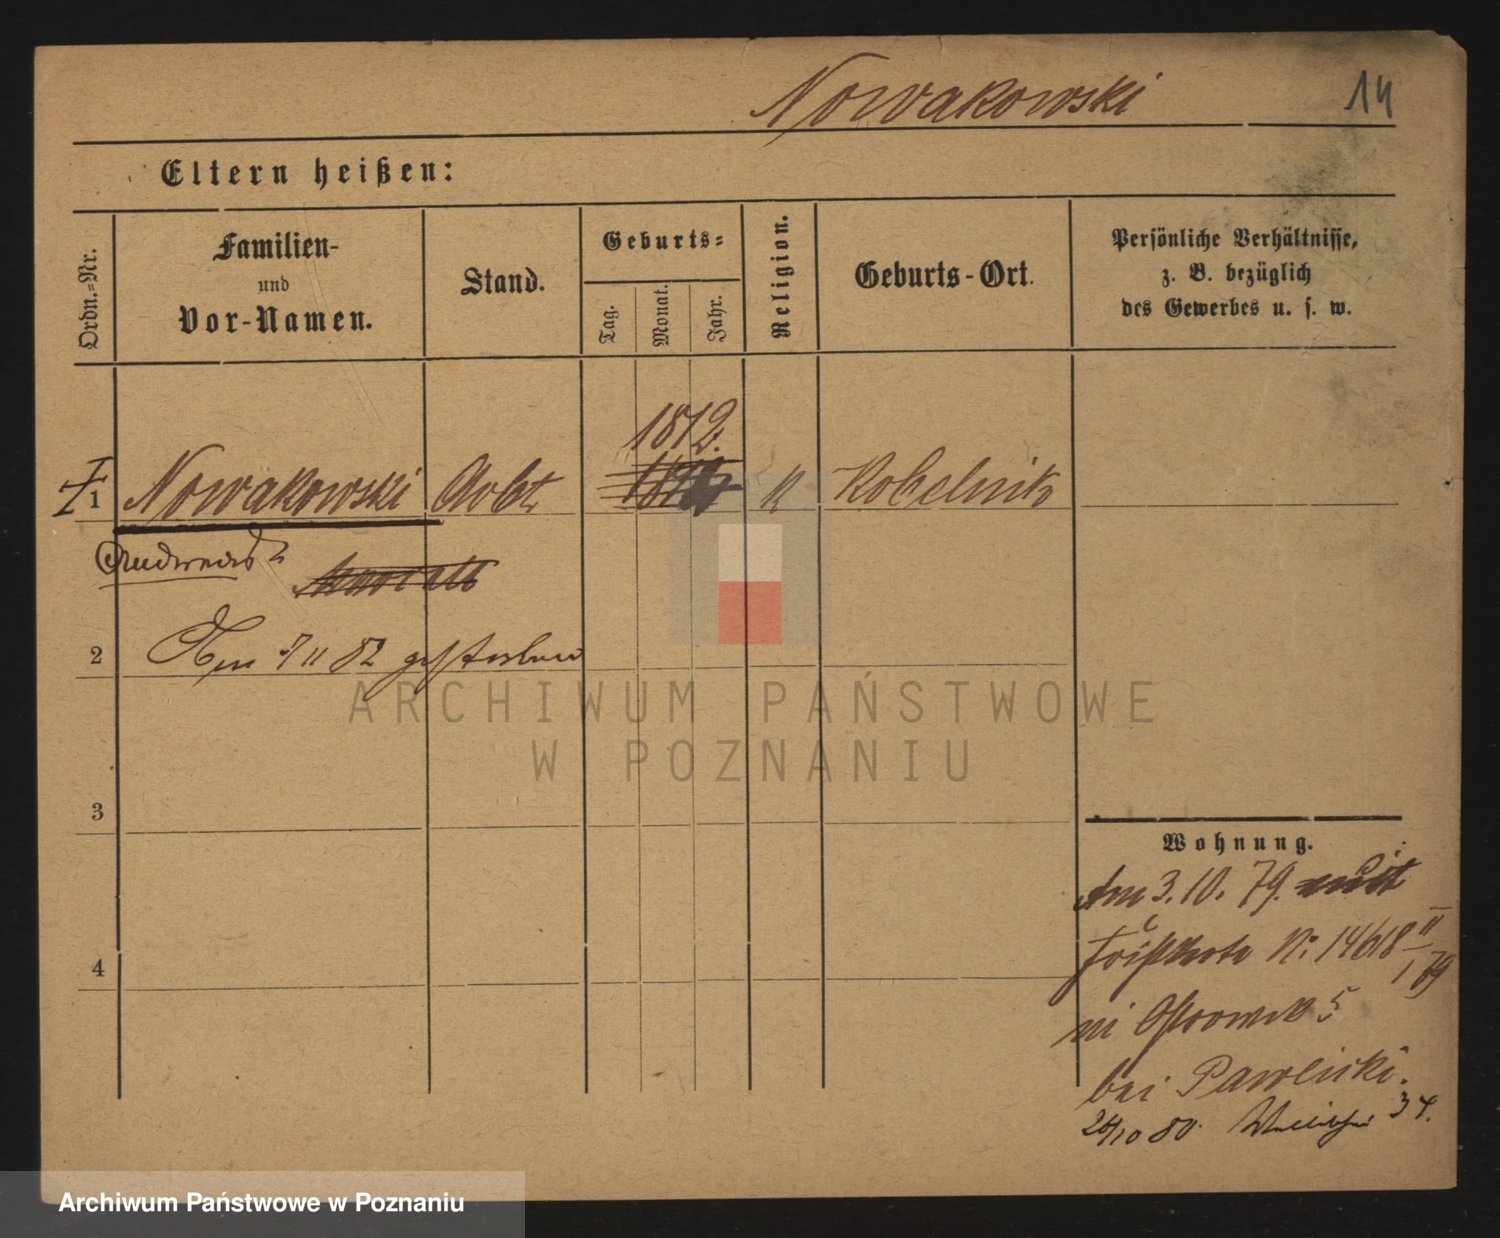 Nowakowski
14
Eltern heißen:
Ordn.-Nr.
Familien-
und
Vor-Namen.
Stand.
Geburts-
Tag.
Monat.
Jahr.
Religion.
Geburts-Ort.
Persönliche Verhältnisse,
z. B. bezüglich
des Gewerbes u. s. w.
1812.
1 Nowakowski Arbt. K Kobelnik
2 7 11 82 gestorben
ARCHIWUM PAŃSTWOWE
W POZNANIU
3
Wohnung.
Am 3. 10. 79. mit
No 14618 II
I 79
4
Ostrowek 5
bei Pawlicki.
26/10 80. 34.
Archiwum Państwowe w Poznaniu